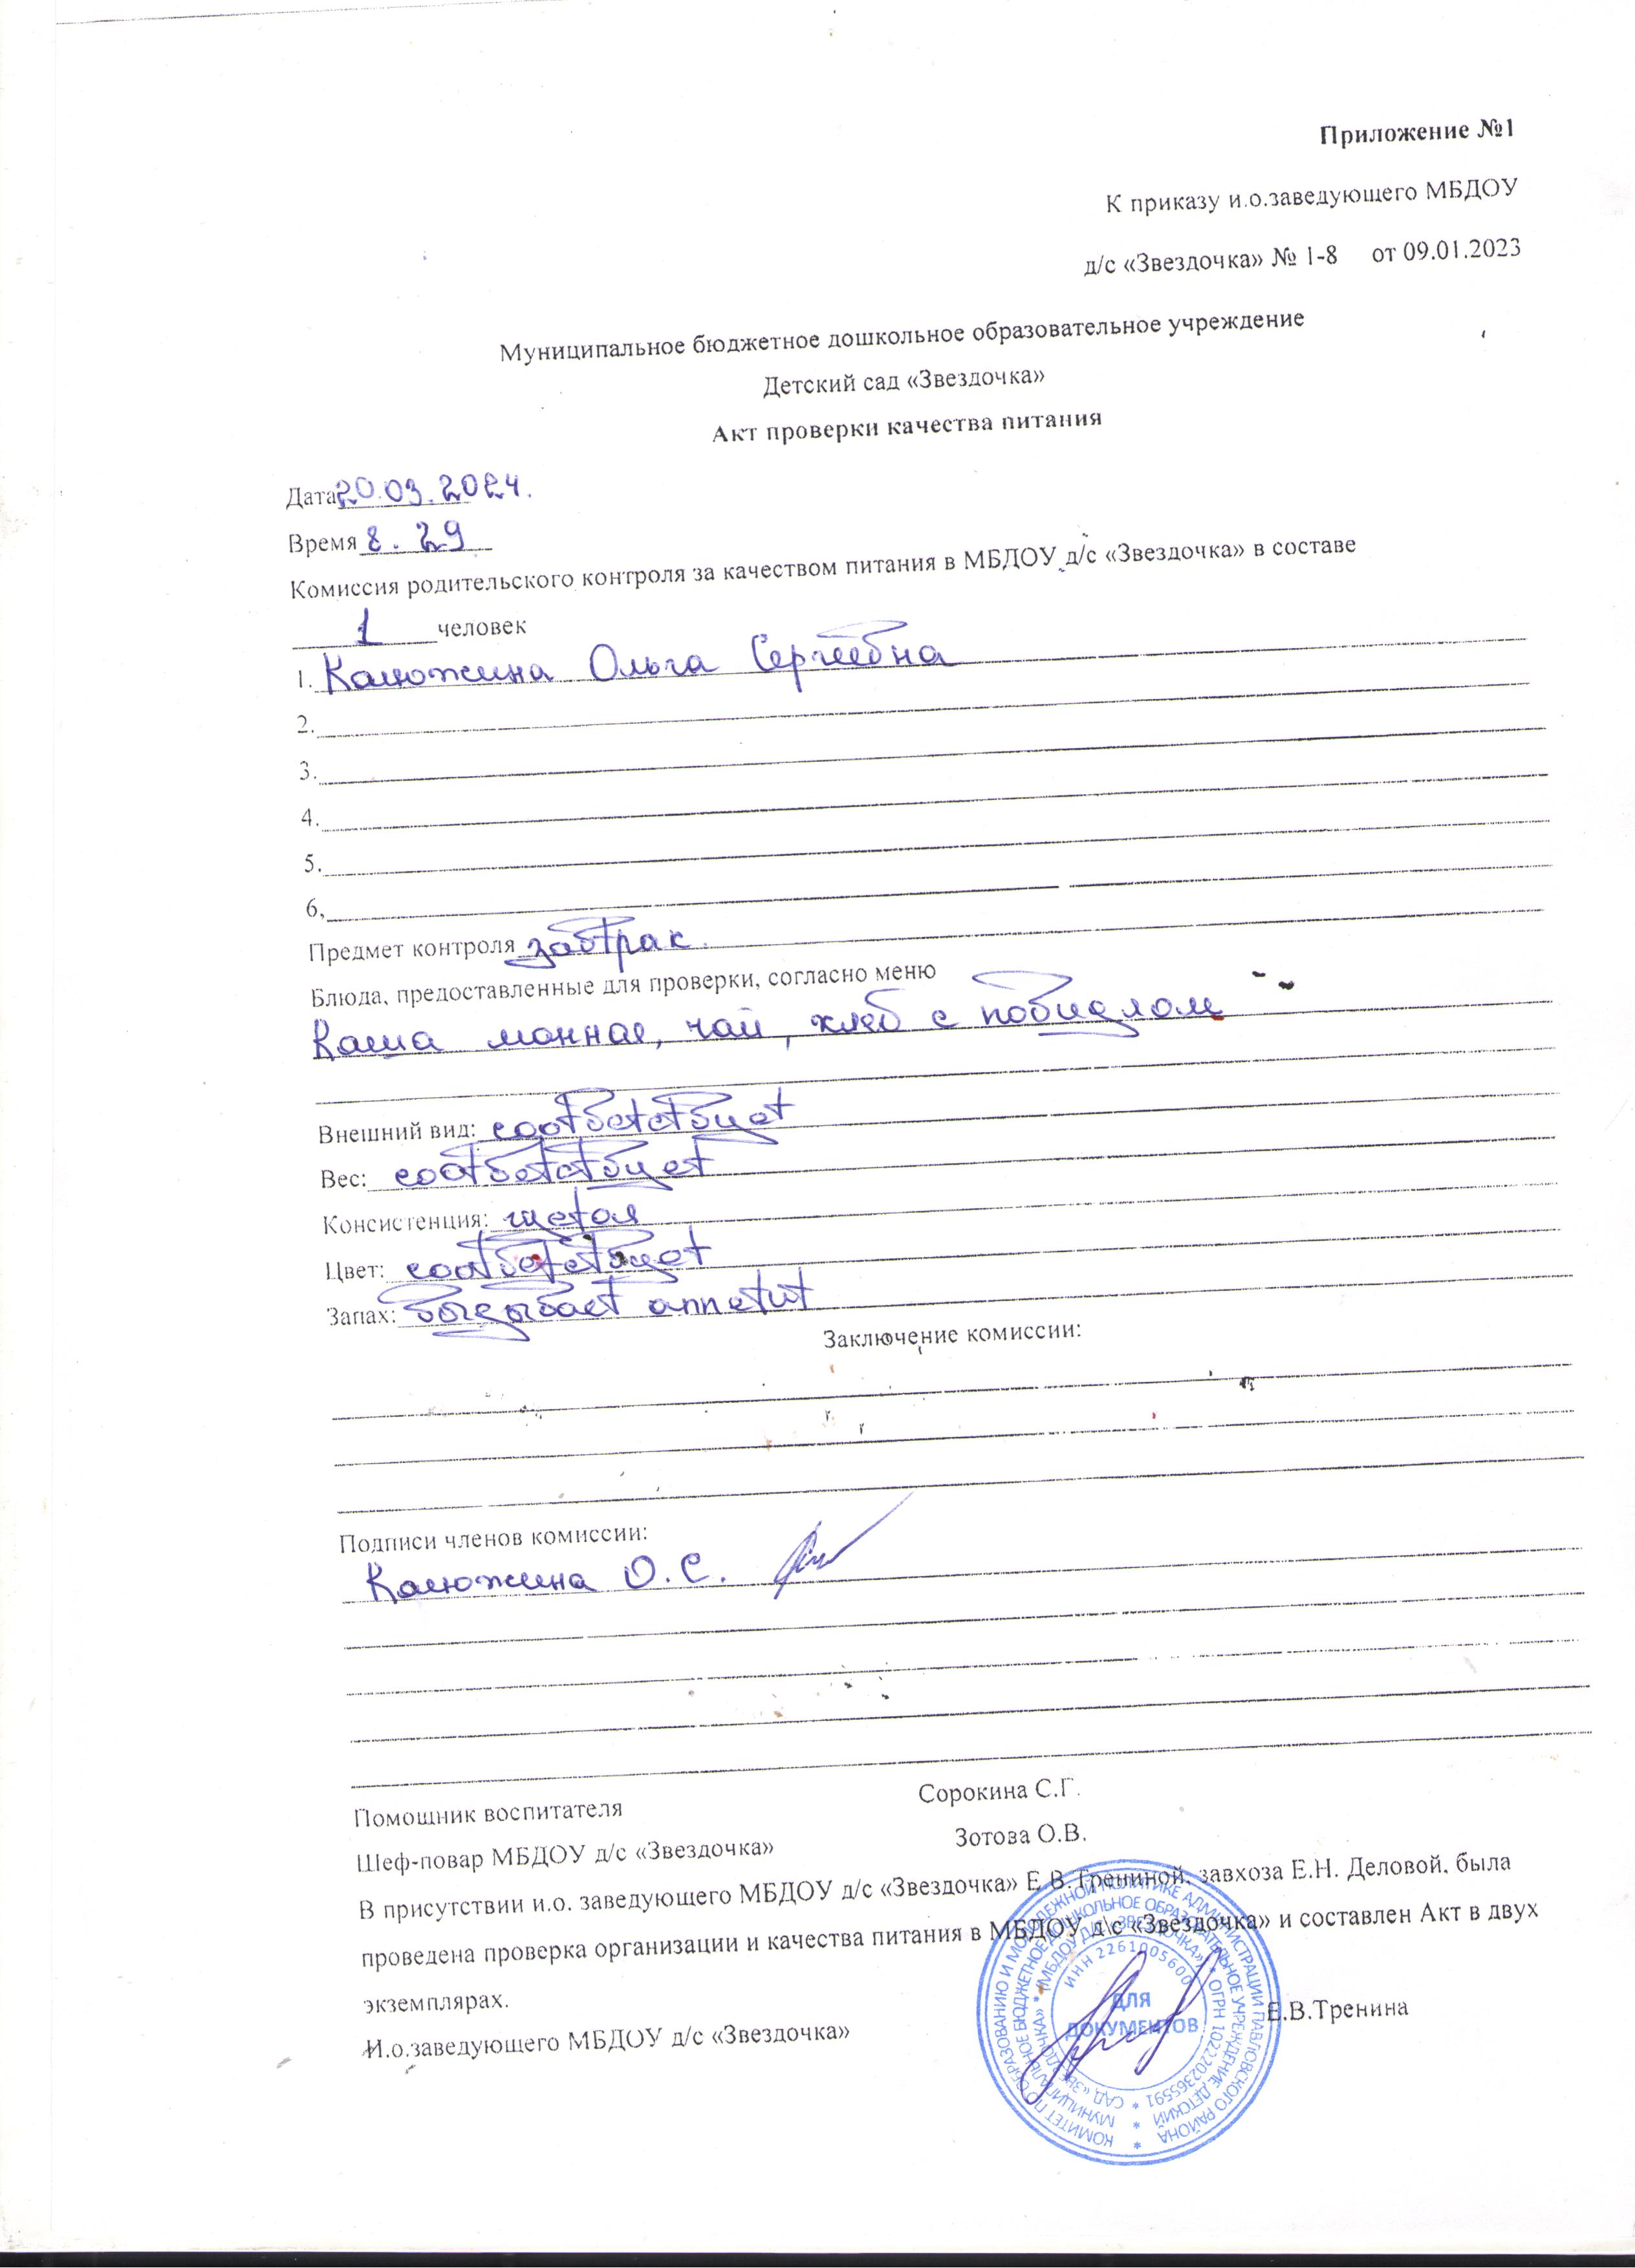 Приложение №1
К приказу и.о.заведующего МБДОУ
д/с «Звездочка» № 1-8 от 09.01.2023
Муниципальное бюджетное дошкольное образовательное учреждение
Детский сад «Звездочка»
Акт проверки качества питания
Дата 20.03.2024.
Время 8.29
Комиссия родительского контроля за качеством питания в МБДОУ д/с «Звездочка» в составе
1 человек
1. Калюжина Ольга Сергеевна
2.
3.
4.
5.
6,
Предмет контроля завтрак.
Блюда, предоставленные для проверки, согласно меню
Каша манная, чай, хлеб с повидлом
Внешний вид: соответствует
Вес: соответствует
Консистенция: густая
Цвет: соответствует
Запах: вызывает аппетит
Заключение комиссии:
Подписи членов комиссии:
Калюжина О.С.
Помощник воспитателя Сорокина С.Г.
Шеф-повар МБДОУ д/с «Звездочка» Зотова О.В.
В присутствии и.о. заведующего МБДОУ д/с «Звездочка» Е.В.Трениной, завхоза Е.Н. Деловой, была
проведена проверка организации и качества питания в МБДОУ д/с «Звездочка» и составлен Акт в двух
экземплярах.
И.о.заведующего МБДОУ д/с «Звездочка» Е.В.Тренина
КОМИТЕТ ПО ОБРАЗОВАНИЮ И МОЛОДЕЖНОЙ ПОЛИТИКЕ АДМИНИСТРАЦИИ ПАВЛОВСКОГО РАЙОНА
МУНИЦИПАЛЬНОЕ БЮДЖЕТНОЕ ДОШКОЛЬНОЕ ОБРАЗОВАТЕЛЬНОЕ УЧРЕЖДЕНИЕ ДЕТСКИЙ
САД «ЗВЕЗДОЧКА» * «МБДОУ Д/С «ЗВЕЗДОЧКА» * ОГРН 1022202365591
ИНН 2261005600
ДЛЯ
ДОКУМЕНТОВ